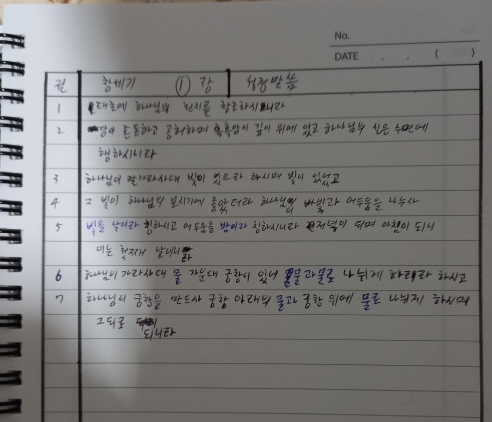 No.
DATE . . ( )
절 창세기 ① 장 성경말씀
1 태초에 하나님이 천지를 창조하시니라
2 땅이 혼돈하고 공허하며 흑암이 깊이 위에 있고 하나님의 신은 수면에
행하시니라
3 하나님이 가라사대 빛이 있으라 하시매 빛이 있었고
4 그 빛이 하나님의 보시기에 좋았더라 하나님이 빛과 어두움을 나누사
5 빛을 낮이라 칭하시고 어두움을 밤이라 칭하시니라 저녁이 되며 아침이 되니
이는 첫째 날이니라
6 하나님이 가라사대 물 가운데 궁창이 있어 물과 물로 나뉘게 하리라 하시고
7 하나님이 궁창을 만드사 궁창 아래의 물과 궁창 위에 물로 나뉘게 하시매
그대로
되니라